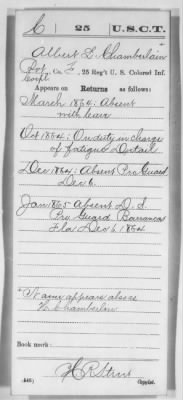 C 25 U.S.C.T.
Albert D. Chamberlain
Co. F, 25 Reg't U. S. Colored Inf.
Appears on Returns as follows:
March 1864: Absent
with leave
Oct 1864: On duty in charge
of fatigue Detail
Dec 1864: Absent Pro Guard
Dec 6.
Jan 1865 Absent D. S.
Pro Guard Barrancas
Fla Dec 6 1864
*Name appears also as
Chamberlin
Book mark:
Copyist.